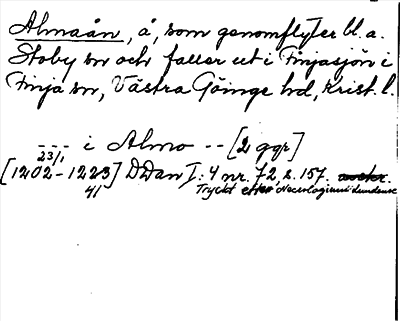 Almaån, å, som genomflyter bl. a.
Stoby sn och faller ut i Finjasjön i
Finja sn, Västra Göinge hd, Krist. l.
--- i Almo -- [2 ggr]
23/1
[1202-1223] DDan I: 4 nr. 72, s. 157.
41 Tryckt efter Necrologium Lundense